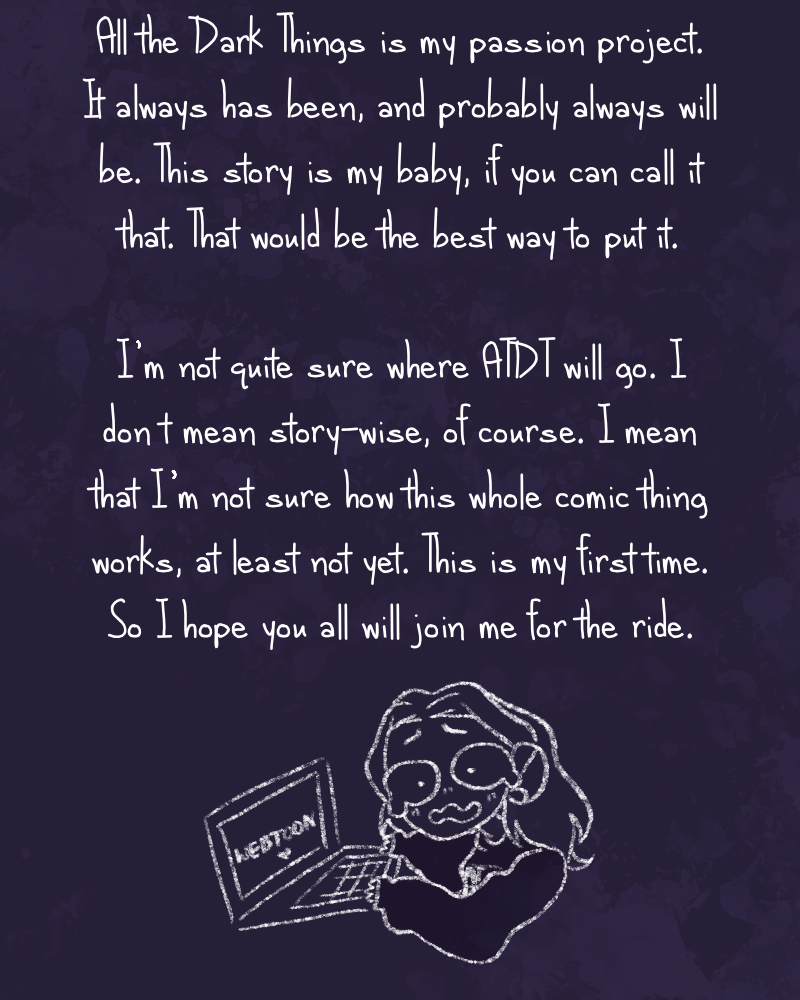 All the Dark Things is my passion project.
It always has been, and probably always will
be. This story is my baby, if you can call it
that. That would be the best way to put it.
I'm not quite sure where ATDT will go. I
don t mean story-wise, of course. I mean
that I'm not sure how this whole comic thing
works, at least not yet. This is my first time.
So I hope you all will join me for the ride.
WEBTOON